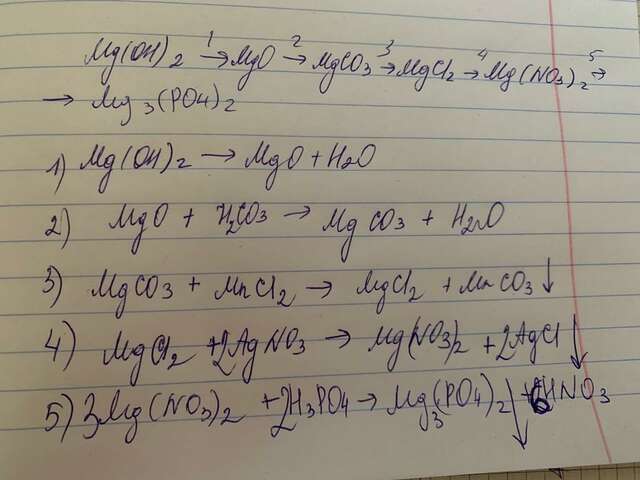 Mg(OH)2 1→ MgO 2→ MgCO3 3→ MgCl2 4→ Mg(NO3)2 5→
→ Mg3(PO4)2
1) Mg(OH)2 → MgO + H2O
2) MgO + H2CO3 → MgCO3 + H2O
3) MgCO3 + MnCl2 → MgCl2 + MnCO3↓
4) MgCl2 + 2AgNO3 → Mg(NO3)2 + 2AgCl↓
5) 3Mg(NO3)2 + 2H3PO4 → Mg3(PO4)2↓ + 6HNO3